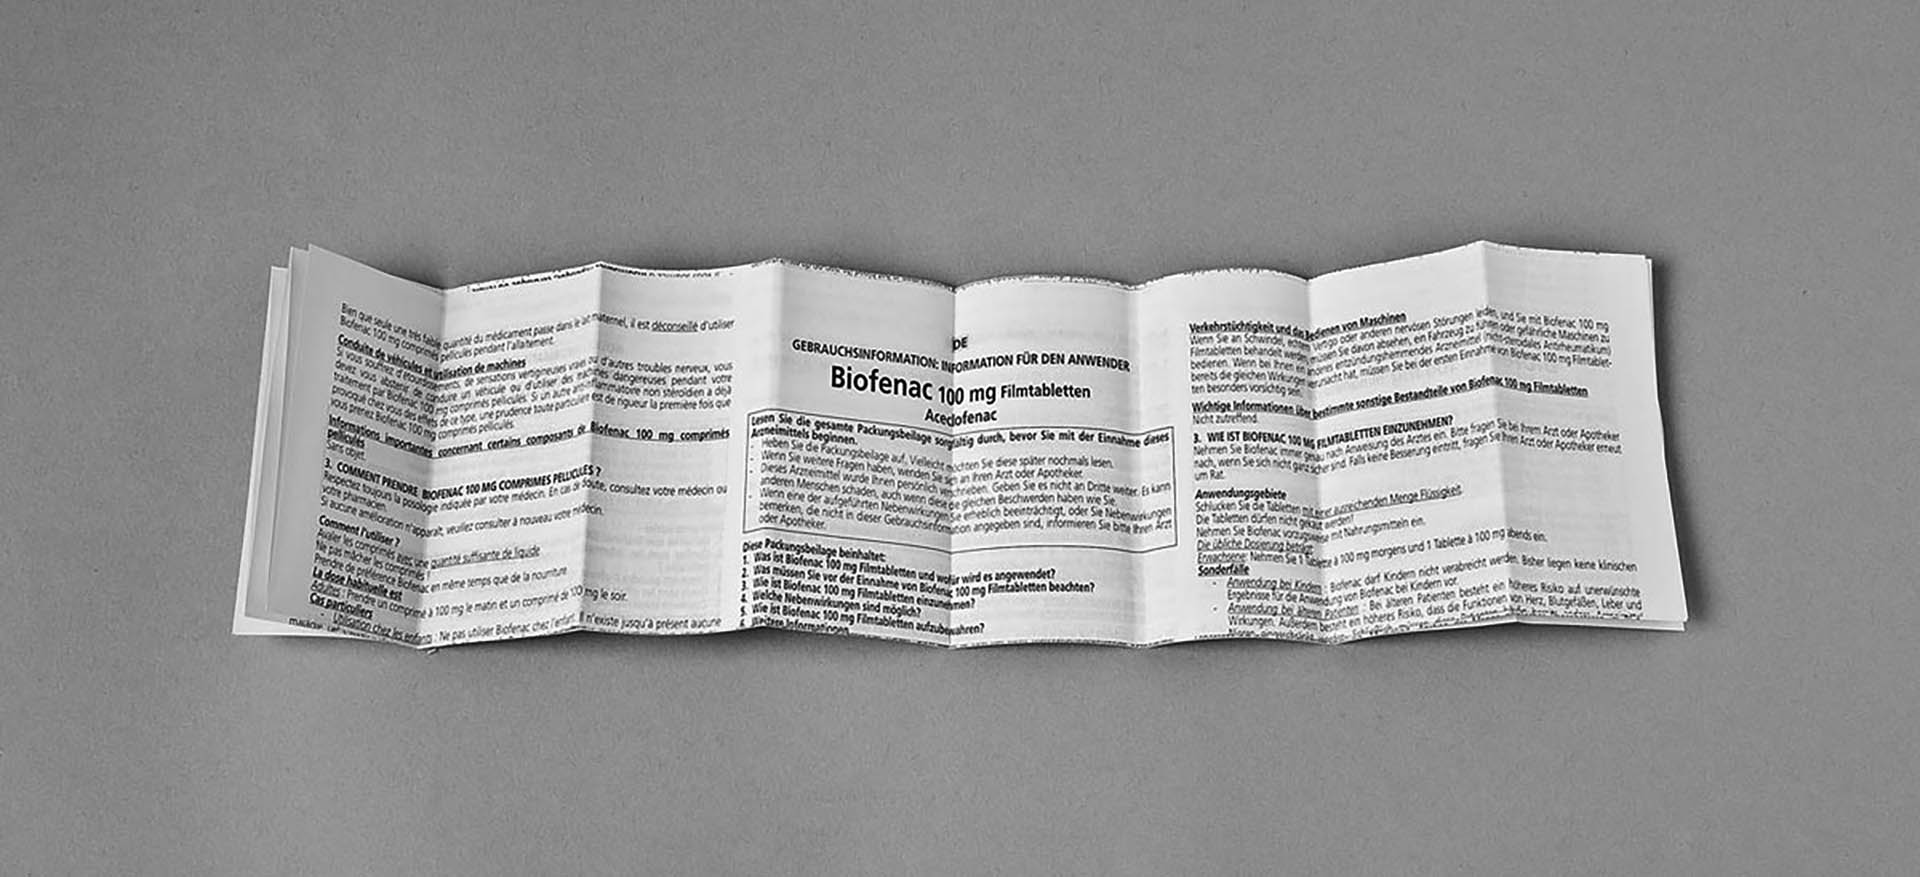 Bien que seule une très faible quantité du médicament passe dans le lait maternel, il est déconseillé d'utiliser
Biofenac 100 mg comprimés pelliculés pendant l'allaitement.
Conduite de véhicules et utilisation de machines
Si vous souffrez d'étourdissements, de sensations vertigineuses vraies ou d'autres troubles nerveux, vous
devez vous abstenir de conduire un véhicule ou d'utiliser des machines dangereuses pendant votre
traitement par Biofenac 100 mg comprimés pelliculés. Si un autre anti-inflammatoire non stéroïdien a déjà
provoqué chez vous des effets de ce type, une prudence toute particulière est de rigueur la première fois que
vous prenez Biofenac 100 mg comprimés pelliculés.
Informations importantes concernant certains composants de Biofenac 100 mg comprimés
pelliculés
Sans objet.
3. COMMENT PRENDRE BIOFENAC 100 MG COMPRIMES PELLICULÉS ?
Respectez toujours la posologie indiquée par votre médecin. En cas de doute, consultez votre médecin ou
votre pharmacien.
Si aucune amélioration n'apparaît, veuillez consulter à nouveau votre médecin.
Comment l'utiliser ?
Avaler les comprimés avec une quantité suffisante de liquide
Ne pas mâcher les comprimés !
Prendre de préférence Biofenac en même temps que de la nourriture.
La dose habituelle est
Adultes : Prendre un comprimé à 100 mg le matin et un comprimé de 100 mg le soir.
Cas particuliers
- Utilisation chez les enfants : Ne pas utiliser Biofenac chez l'enfant. Il n'existe jusqu'à présent aucune
DE
GEBRAUCHSINFORMATION: INFORMATION FÜR DEN ANWENDER
Biofenac 100 mg Filmtabletten
Aceclofenac
Lesen Sie die gesamte Packungsbeilage sorgfältig durch, bevor Sie mit der Einnahme dieses
Arzneimittels beginnen.
- Heben Sie die Packungsbeilage auf. Vielleicht möchten Sie diese später nochmals lesen.
- Wenn Sie weitere Fragen haben, wenden Sie sich an Ihren Arzt oder Apotheker.
- Dieses Arzneimittel wurde Ihnen persönlich verschrieben. Geben Sie es nicht an Dritte weiter. Es kann
anderen Menschen schaden, auch wenn diese die gleichen Beschwerden haben wie Sie.
- Wenn eine der aufgeführten Nebenwirkungen Sie erheblich beeinträchtigt, oder Sie Nebenwirkungen
bemerken, die nicht in dieser Gebrauchsinformation angegeben sind, informieren Sie bitte Ihren Arzt
oder Apotheker.
Diese Packungsbeilage beinhaltet:
1. Was ist Biofenac 100 mg Filmtabletten und wofür wird es angewendet?
2. Was müssen Sie vor der Einnahme von Biofenac 100 mg Filmtabletten beachten?
3. Wie ist Biofenac 100 mg Filmtabletten einzunehmen?
4. Welche Nebenwirkungen sind möglich?
5. Wie ist Biofenac 100 mg Filmtabletten aufzubewahren?
6. Weitere Informationen
Verkehrstüchtigkeit und das Bedienen von Maschinen
Wenn Sie an Schwindel, echtem Vertigo oder anderen nervösen Störungen leiden, und Sie mit Biofenac 100 mg
Filmtabletten behandelt werden, müssen Sie davon absehen, ein Fahrzeug zu führen oder gefährliche Maschinen zu
bedienen. Wenn bei Ihnen ein anderes entzündungshemmendes Arzneimittel (nicht-steroidales Antirheumatikum)
bereits die gleichen Wirkungen verursacht hat, müssen Sie bei der ersten Einnahme von Biofenac 100 mg Filmtablet-
ten besonders vorsichtig sein.
Wichtige Informationen über bestimmte sonstige Bestandteile von Biofenac 100 mg Filmtabletten
Nicht zutreffend.
3. WIE IST BIOFENAC 100 MG FILMTABLETTEN EINZUNEHMEN?
Nehmen Sie Biofenac immer genau nach Anweisung des Arztes ein. Bitte fragen Sie bei Ihrem Arzt oder Apotheker
nach, wenn Sie sich nicht ganz sicher sind. Falls keine Besserung eintritt, fragen Sie Ihren Arzt oder Apotheker erneut
um Rat.
Anwendungsgebiete
Schlucken Sie die Tabletten mit einer ausreichenden Menge Flüssigkeit.
Die Tabletten dürfen nicht gekaut werden!
Nehmen Sie Biofenac vorzugsweise mit Nahrungsmitteln ein.
Die übliche Dosierung beträgt
Erwachsene: Nehmen Sie 1 Tablette à 100 mg morgens und 1 Tablette à 100 mg abends ein.
Sonderfälle
- Anwendung bei Kindern: Biofenac darf Kindern nicht verabreicht werden. Bisher liegen keine klinischen
Ergebnisse für die Anwendung von Biofenac bei Kindern vor.
- Anwendung bei älteren Patienten : Bei älteren Patienten besteht ein höheres Risiko auf unerwünschte
Wirkungen. Außerdem besteht ein höheres Risiko, dass die Funktionen von Herz, Blutgefäßen, Leber und